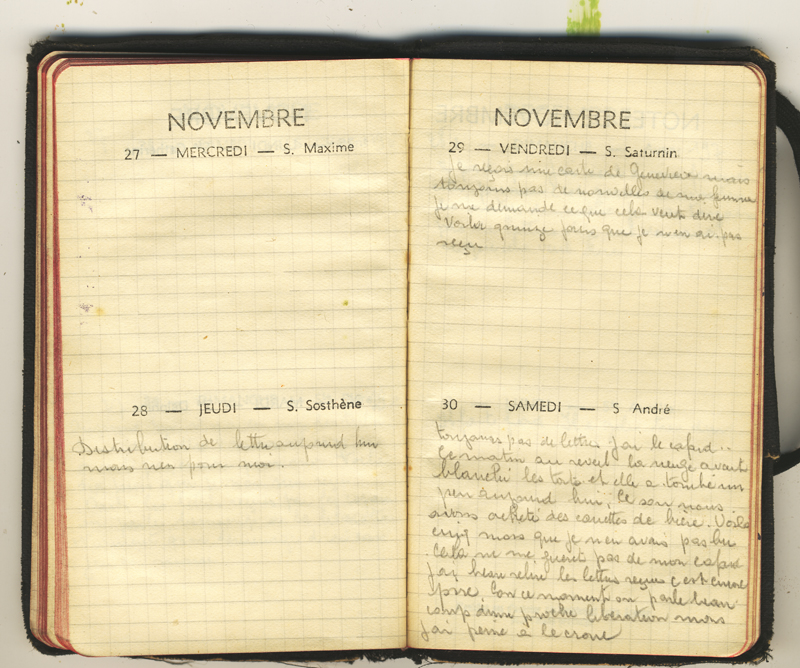 NOVEMBRE
27 — MERCREDI — S. Maxime
28 — JEUDI — S. Sosthène
Distribution de lettre aujourd hui
mais rien pour moi.
NOVEMBRE
29 — VENDREDI — S. Saturnin
Je reçois une carte de Genevieve mais
toujours pas de nouvelles de ma femme
je me demande ce que cela veut dire
Voila quinze jours que je n'en ai pas
reçu
30 — SAMEDI — S André
toujours pas de lettres j'ai le cafard..
Ce matin au reveil la neige avait
blanchi les toits et elle a tombé un
peu aujourd hui. Ce soir nous
avons acheté des canettes de bière. Voila
cinq mois que je n'en avais pas bu
Cela ne me guerit pas de mon cafard
j'ai beau relire les lettres reçues c'est encore
pire. En ce moment on parle beau
coup d'une proche libération mais
j'ai peine a le croire